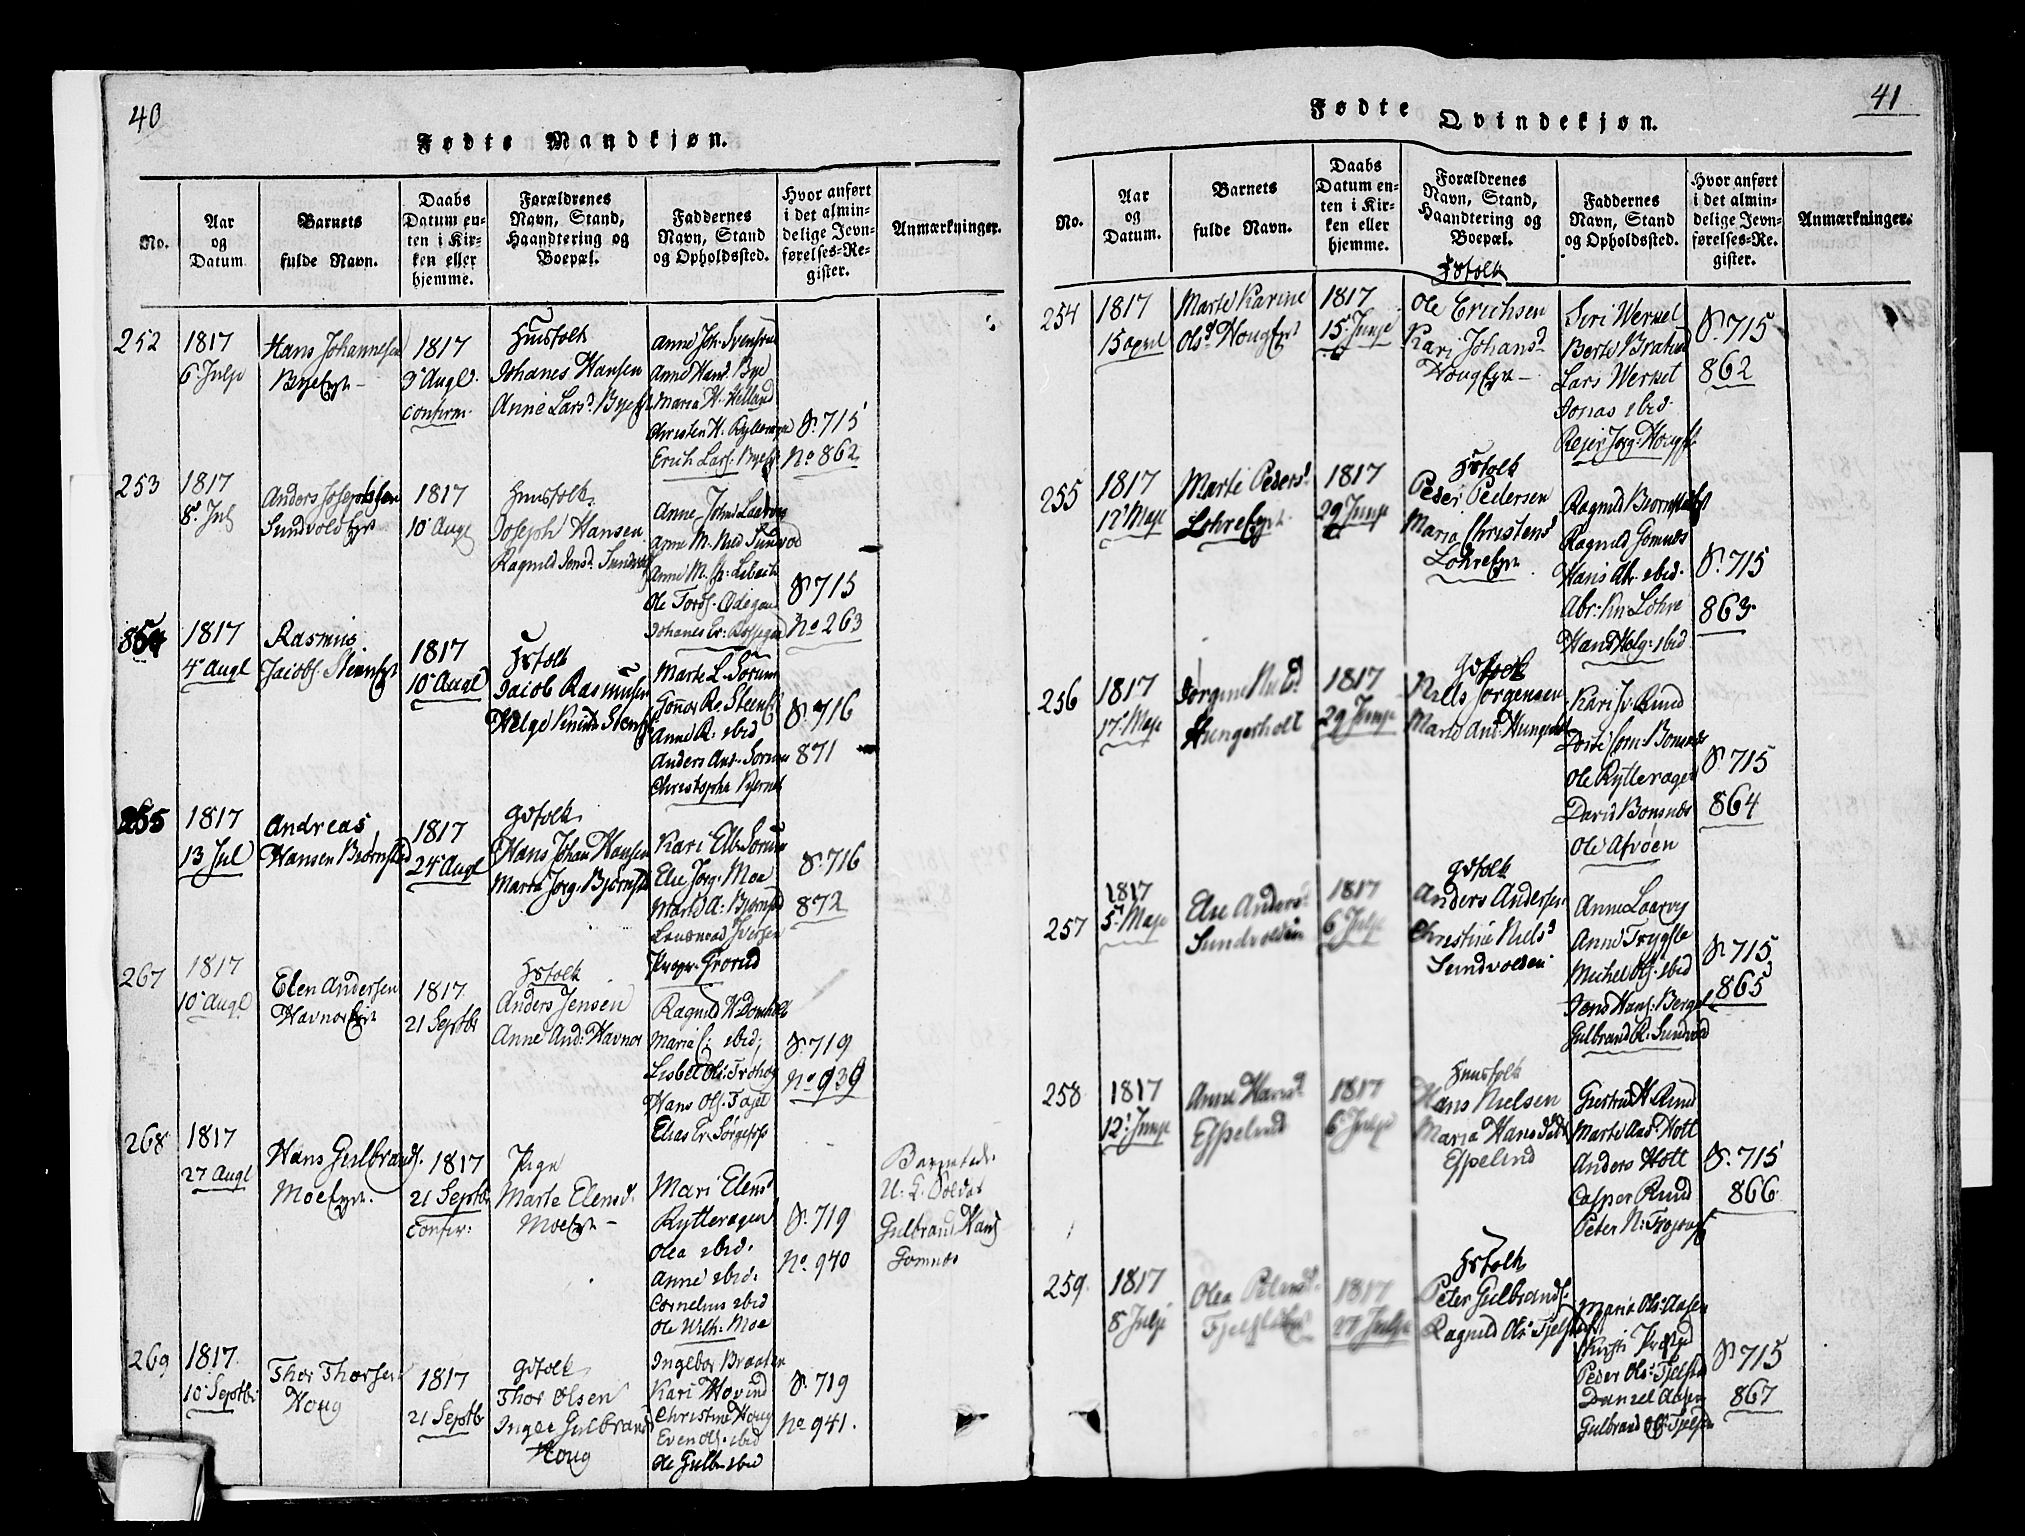 40
Fødte Mandkjøn.
No.
Aar og Datum
Barnets fulde Navn.
Daabs Datum enten i Kirken eller hjemme.
Forældrenes Navn, Stand, Haandtering og Boepæl.
Faddernes Navn, Stand og Opholdssted.
Hvor anført i det almindelige Jevnførelses-Register.
Anmærkninger.
252
1817
6 Julje
Hans Johannesen
Bye
1817
3 Augl.
Confirm.
Huusfolk
Johanes Hansen
Anne Larsd. Bye
Anne Joh. Svensrud
Anne Hans. Bye
Maria H. Helland
Christen H. Rytterager
Erich Lars. Bye
S. 715
No 862
253
1817
8 Jul
Anders Josephsen
Sundvold
1817
10 Augl
Huusfolk
Joseph Hansen
Ragnild Jensd. Sundvold
Anne Johnsd
Anne M. Sundvold
Anne M.
Ole Tords. Ødegaard
Johanes Er.
S. 715
No 263
1817
4 Augl
Rasmus
Jacobs. Steens
1817
10 Augl
Hsfolk
Jacob Rasmusen
Helge Knuts. Steens
Marte L. Sorum
Gonor Rs. Steens
Anne R. ibid
Anders And. Sorum
Christopher
S. 716
871
255
1817
13 Jul
Andreas
Hansen Biørnstad
1817
24 Augl
Gdfolk
Hans Johan Hansen
Maria Jorg. Bjørnstad
Kari Elb. Sorum
Else Jorg. Moe
Marte A. Biørnstad
Iversen
Grorud
S. 716
872
267
1817
10 Augl
Elen Andersen
Havnor
1817
21 Septbr
Hsfolk
Anders Jensen
Anne And. Havnor
Ragnild H. Domholt
Maria C. ibid.
Lisbet Ols. Frøhog
Hans Ols.
Elias Er. Sørgefos
S. 719
No 939
268
1817
27 Augl
Hans Gulbrands.
Moe
1817
21 Septbr
Confir.
Pige
Marte Elensd.
Moe
Mari Elens
Rytterager
Olea ibid.
Anne ibid.
Cornelius ibid
Ole Wilh. Moe
S. 719
No. 940
Barnefader
U. G. Soldat
Gulbrand Hans
Gomnæs
269
1817.
10 Septbr
Thor Thorsen
Houg
1817
21 Septb
Gdfolk
Thor Olsen
Inger Gulbrands
Houg
Ingebor Braaten
Kari Hovind
Christine Houg
Even Ols. ibid
Ole Gulb. ibid
S. 719
No 941.
41
Fødte Qvindekjøn.
No.
Aar og Datum.
Barnets fulde Navn.
Daabs Datum enten i Kirken eller hjemme.
Forældrenes Navn, Stand, Haandtering og Boepæl.
Faddernes Navn, Stand og Opholdssted.
Hvor anført i det almindelige Jevnførelses-Register.
Anmærkninger.
254
1817
15 april
Marte Karine
Olsd. Houg
1817
15 Junje
Hsfolk
Ole Erichsen
Kari Johansd
Houg
Siri Werket
Berte Braten
Lars Werket
Jonas ibid.
Rejer Jorg. Houg
S. 715
862
255
1817
12 Maje
Marte Pedersd
Lohre
1817
29 Junje
Hsfolk
Peder Pedersen
Maria Christensd
Lohre
Ragnild Biornstad
Ragnild Gomnæs
Hans Ab. ibid.
Abr. Kn. Lohre
Hans Helg. ibid
S. 715
863
256
1817
17 Maje
Jorgine Nilsd
Hungerholt
1817
29 Junje
Gdfolk
Niels Jorgensen
Marte And. Hungerholt
Kari Iv. Rud
Dorte Jorn. Bonsnæs
Ole Rytterager
David Bonsnæs
Ole Afvøen
S. 715
864
257
1817
5 Maje
Else Andersd
Sundvolden
1817
6 Julje
Gdfolk
Anders Andersen
Christine Nielsd
Sundvolden
Anne Laarvig
Anne Trygsle
Michel Ols. ibid
Jens Hans. Berget
Gulbrand R. Sundvold
S. 715
865
258
1817
12 Junje
Anne Hansd
Espelund
1817
6 Julje
Huusfolk
Hans Nielsen
Maria Hansdat
Espelund
Giertrud H. Rud
Marte And. Holt
Anders Holt
Casper Rud
Peter N.
S. 715
866
259
1817
8 Julje
Olea Petersd.
1817
27 Julje
Hsfolk
Peter Gulbrands.
Ragnild Ols.
Maria Ols. Aasen
Kirsti
Peder Ols.
Daniel Aasen
Gulbrand Ols.
S. 715
867